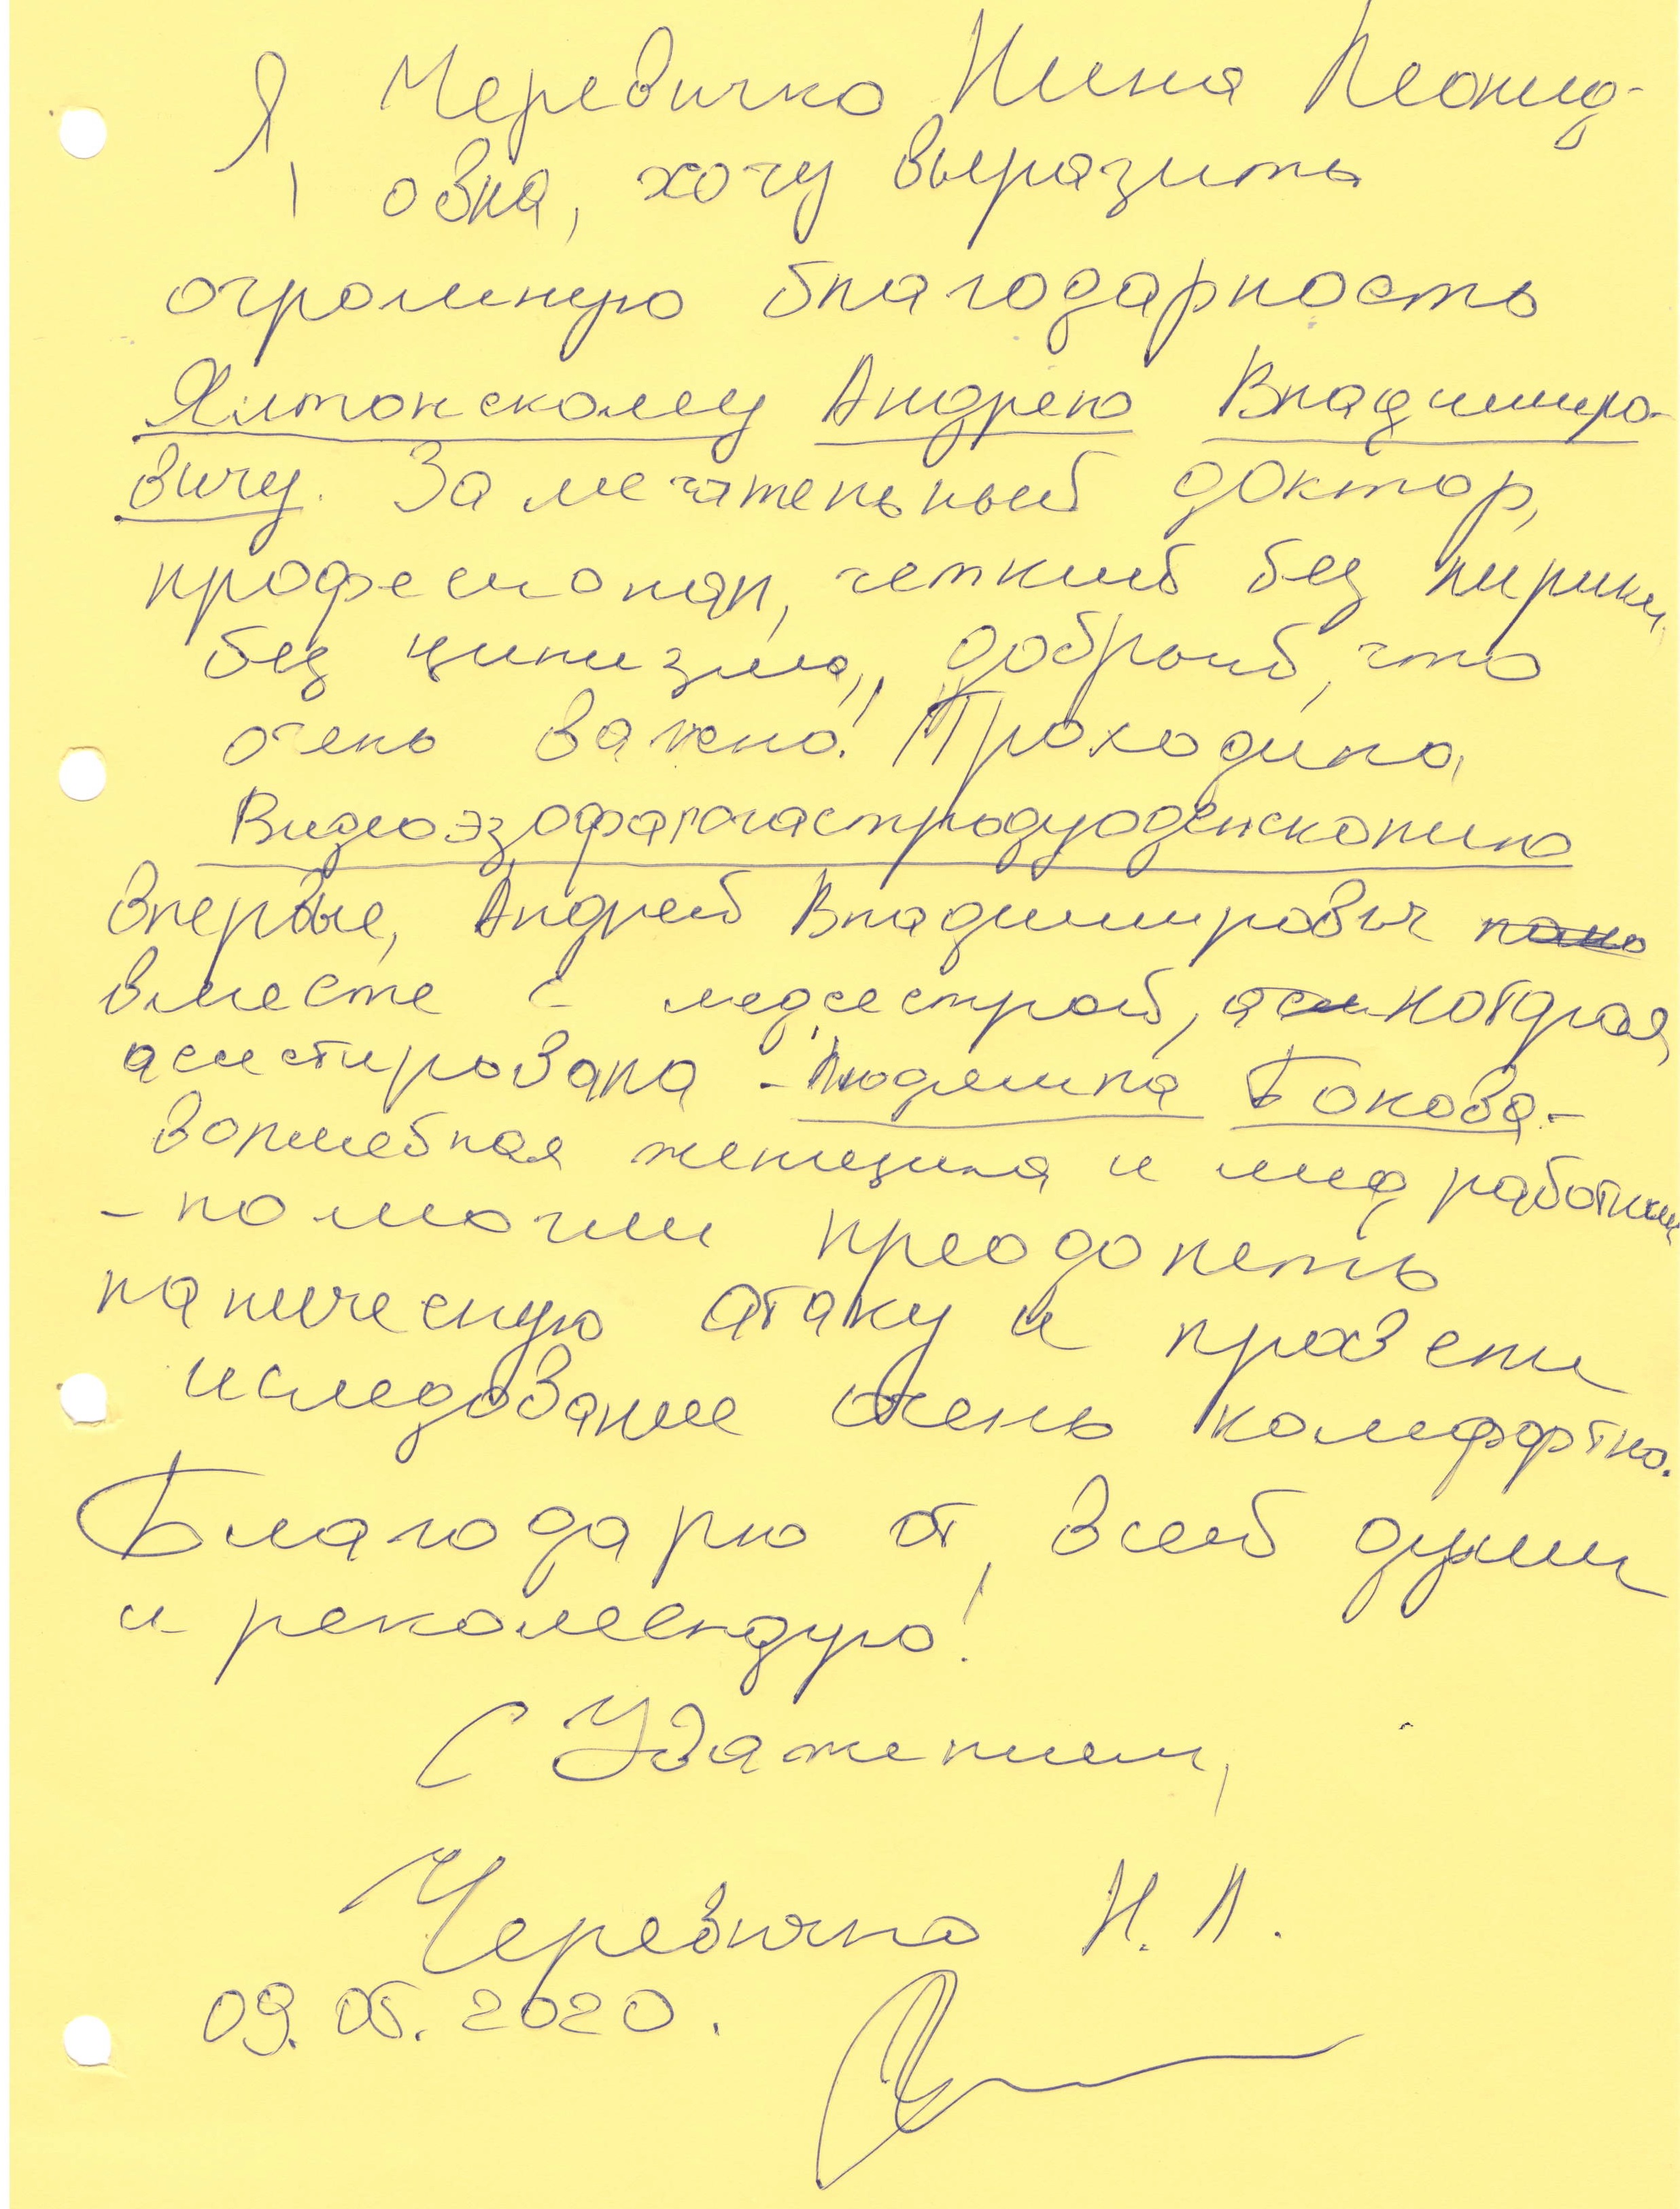 Я, Черевичко Нина Леонид-
овна, хочу выразить
огромную благодарность
Ялтонскому Андрею Владимиро-
вичу. Замечательный доктор,
професионал, четкий без лирики,
без цинизма, добрый, что
очень важно! Проходила
Видеоэзофагогастродуоденскопию
впервые, Андрей Владимирович
вместе с медсестрой, которая
асистировала - Людмила Бокова -
волшебная женщина и мед работник
- помогли преодолеть
паническую атаку и провести
иследование очень комфортно.
Благодарю от всей души
и рекомендую!
С Уважением,
Черевичко Н. Л.
09.06.2020.